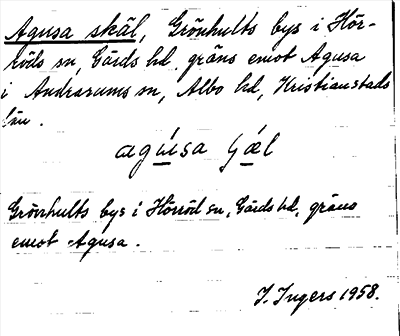 Agusa skäl, Grönhults bys i Hör-
röds sn, Gärds hd, gräns emot Agusa
i Andrarums sn, Albo hd, Kristianstads
län.
agusa
Grönhults bys i Hörröd sn, Gärds hd, gräns
emot Agusa.
I. Ingers 1958.